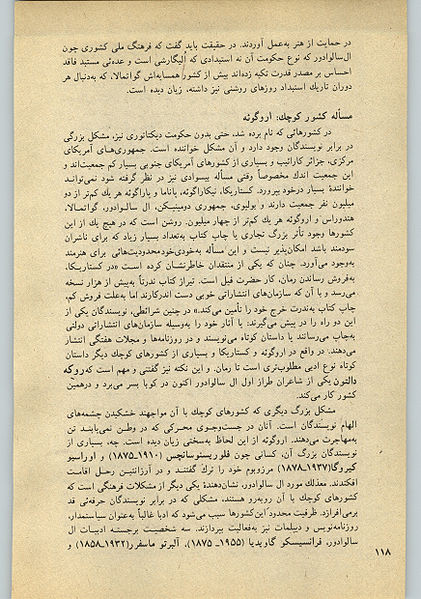 در حمایت از هنر به‌عمل آوردند. در حقیقت باید گفت که فرهنگ ملی کشوری چون
ال‌سالوادور که نوع حکومت آن نه استبدادی که الیگارشی است و عده‌ئی مستبد فاقد
احساس بر مصدر قدرت تکیه زده‌اند بیش از کشور همسایه‌اش گواتمالا، که به‌دنبال هر
دوران تاریك استبداد روزهای روشنی نیز داشته، زیان دیده است.
مسأله کشور کوچك: اروگوئه
در کشورهائی که نام برده شد، حتی بدون حکومت دیکتاتوری نیز، مشکل بزرگی
در برابر نویسندگان وجود دارد و آن مشکل خواننده است. جمهوری‌های آمریکای
مرکزی، جزائر کارائیب و بسیاری از کشورهای آمریکای جنوبی بسیار کم جمعیت‌اند و
این جمعیت اندك مخصوصاً وقتی مسأله بیسوادی نیز در نظر گرفته شود نمی‌تواند
خوانندهٔ بسیار درخود بپرورد. کستاریکا، نیکاراگوئه، پاناما و پاراگوئه هر یك کم‌تر از دو
میلیون نفر جمعیت دارند و بولیوی، جمهوری دومینیکن، ال سالوادور، گواتمالا،
هندوراس و اروگوئه هر یك کم‌تر از چهار میلیون. روشن است که در هیچ یك از این
کشورها وجود تآتر بزرگ تجاری یا چاپ کتاب به‌تعداد بسیار زیاد که برای ناشران
سودمند باشد امکان‌پذیر نیست و این مسأله به‌خودی‌خود محدودیت‌هائی برای هنرمند
به‌وجود می‌آورد. چنان که یکی از منتقدان خاطرنشان کرده است «در کستاریکا،
به‌فروش رساندن رمان، کار حضرت فیل است. تیراژ کتاب ندرتاً به‌بیش از هزار نسخه
می‌رسد و با آن که سازمان‌های انتشاراتی خوبی دست اندرکارند اما به‌علت فروش کم،
چاپ کتاب به‌ندرت خرج خود را تأمین می‌کند.» در چنین شرائطی، نویسندگان یکی از
این دو راه را در پیش می‌گیرند: یا آثار خود را به‌وسیله سازمان‌های انتشاراتی دولتی
به‌چاپ می‌رسانند یا داستان کوتاه می‌نویسند و در روزنامه‌ها و مجلات هفتگی انتشار
می‌دهند. در واقع در اروگوئه و کستاریکا و بسیاری از کشورهای کوچك دیگر داستان
کوتاه نوع ادبی مطلوب‌تری است تا رمان. و این نکته نیز گفتنی و مهم است که روکه
دالتون یکی از شاعران طراز اول ال سالوادور اکنون در کوبا بسر می‌برد و درهمین
کشور کار می‌کند.
مشکل بزرگ دیگری که کشورهای کوچك با آن مواجهند خشکیدن چشمه‌های
الهام نویسندگان است. آنان در جست‌وجوی محرکی که در وطن نمی‌یابند تن
به‌مهاجرت می‌دهند. اروگوئه از این لحاظ به‌سختی زیان دیده است. چه، بسیاری از
نویسندگان بزرگ آن، کسانی چون فلورنسیوسانچس (۱۹۱۰ـ۱۸۷۵) و اوراسیو
کیروگا(۱۹۳۷ـ۱۸۷۸) مرزوبوم خود را ترك گفتند و در آرژانتین رحل اقامت
افکندند. معذلك مورد ال سالوادور، نشان‌دهندهٔ یکی دیگر از مشکلات فرهنگی است که
کشورهای کوچك با آن روبه‌رو هستند، مشکلی که در برابر نویسندگان حرفه‌ئی قد
برمی‌افرازد. ظرفیت محدود این کشورها سبب می‌شود که ادبا غالباً به‌عنوان سیاستمدار،
روزنامه‌نویس و دیپلمات نیز به‌فعالیت بپردازند. سه شخصیت برجسته ادبیات ال
سالوادور، فرانسیسکو گاویدیا (۱۹۵۵ـ ۱۸۷۵)، آلبرتو ماسفرر(۱۹۳۲ـ۱۸۵۸) و
۱۱۸